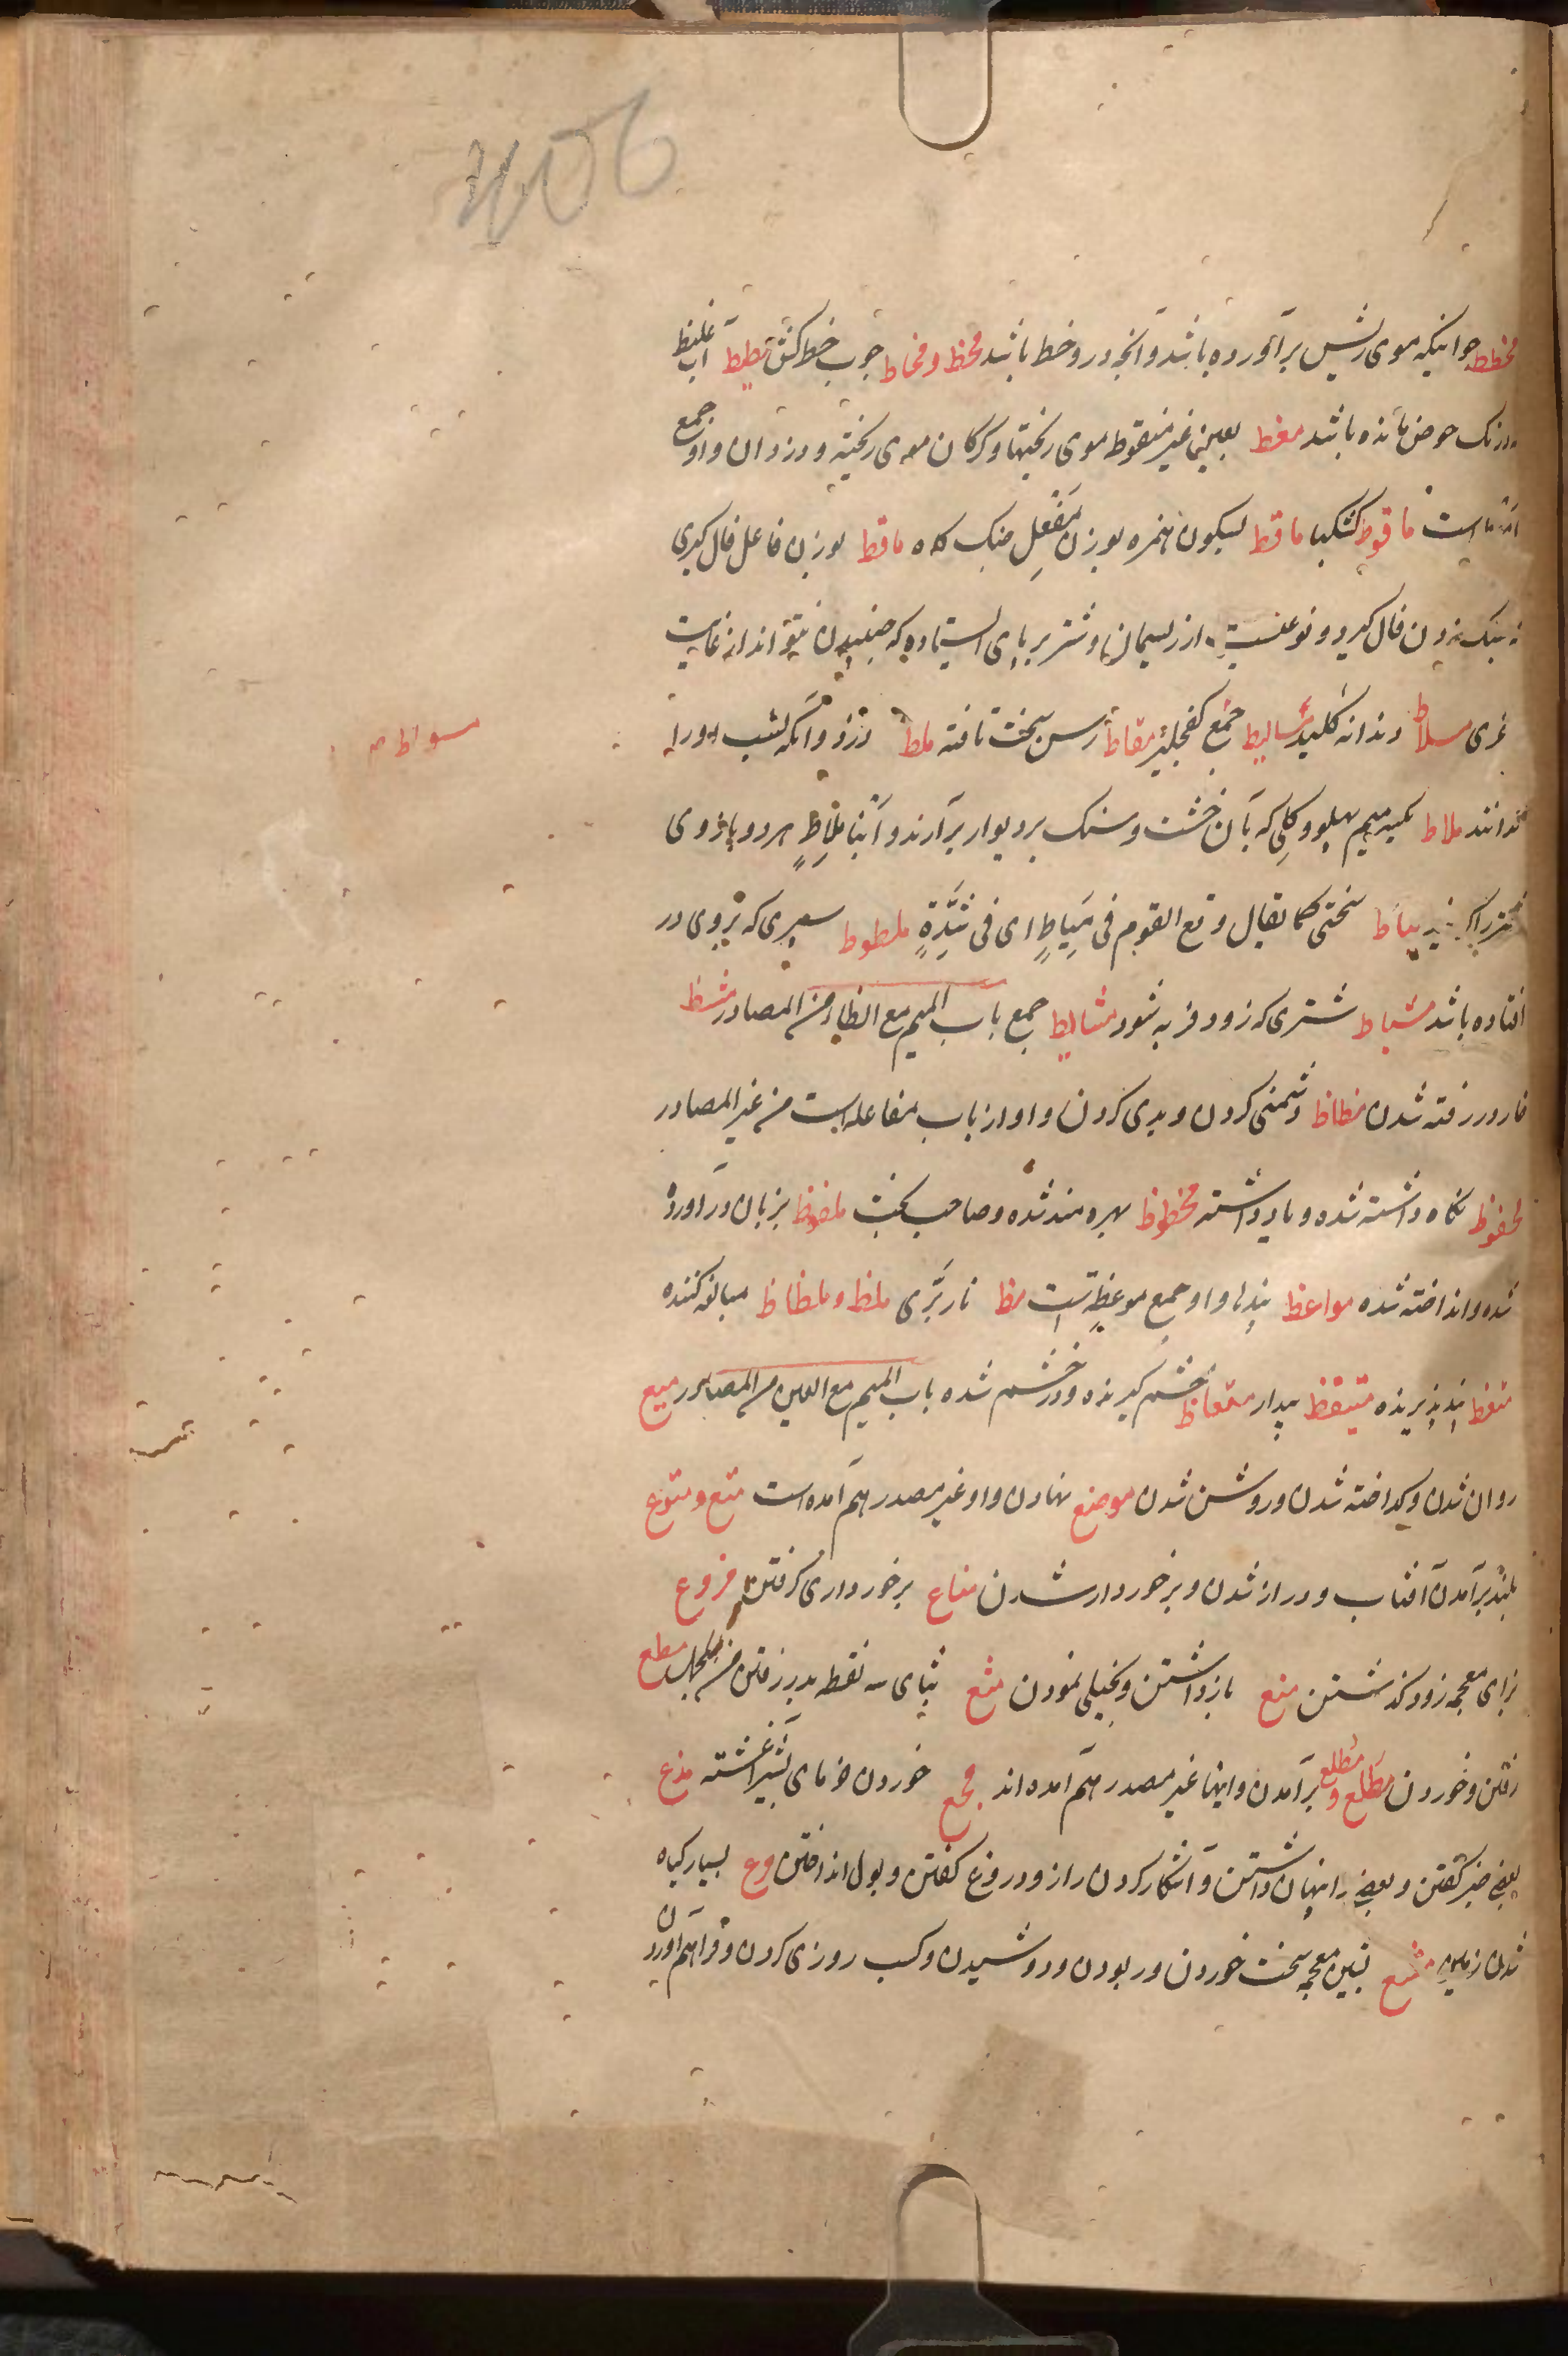 مخطط جوانیکه موی ریش برآورده باشد و آنچه درو خط باشد مخط و مخاط چوب خط کش مطیط آب غلیظ
در تک حوض مانده باشد معط بعین غیر منقوط موی ریختها و گرگان موی ریخته و دزدان و او جمع
است ماقوط ماقط بسکون همزه بوزن مفعل جنگ گاه ماقط بوزن فاعل فال گیری
سنک زدن فال گیرد و نوعیست از ریسمان و شتر بر پای ایستاده که جنبیدن نتواند از غایت
غری مسلاط دندانه کلید مسالیط جمع کفچلیز مقاط رسن سخت تافته ملط دزد و آنکه نسب اورا
سواط
ندانند ملاط بکسر میم پهلو و گلی که بآن خشت و سنک بر دیوار برآرند و ابنا ملاط هر دو بازوی
شتر را گویند میاط سختی کما یقال وقع القوم فی میاط ای فی شدة ملطوط سپری که بروی در
افتاده باشد مشیاط شتری که زود فربه شود مشاییط جمع باب المیم مع الظاء من المصادر مشظ
خار در رفته شدن مظاظ دشمنی کردن و بدی کردن و او از باب مفاعله است من غیر المصادر
محفوظ نگاه داشته شده و یاد داشته محظوظ بهره مند شده و صاحب بخت ملفوظ بزبان در آورده
شده و انداخته شده مواعظ پندها و او جمع موعظه است مظ نار بری ملظ و ملظاظ مبالغه کننده
متعظ پند پذیرنده متیقظ بیدار مغتاظ خشم گیرنده و در خشم شده باب المیم مع العین من المصادر میع
روان شدن و گداخته شدن و روشن شدن موضع نهادن و او غیر مصدر هم آمده است متع و متوع
بلند برآمدن آفتاب و دراز شدن و برخوردار شدن متاع برخورداری گرفتن مزوع
بزای معجمه زود گذشتن منع بازداشتن و بخیلی نمودن مثع بثای سه نقطه بدر رفتن مطع
رفتن و خوردن مطلع و مطلع برآمدن و اینها غیر مصدر هم آمده اند مجع خوردن خرمای بشیر آغشته مذع
بعضی خبر گفتن و بعضی را پنهان داشتن و آشکار کردن راز و دروغ گفتن و بول انداختن مرع بسیار گیاه
شدن زمین مشع بشین معجمه سخت خوردن و ربودن و دوشیدن و کسب روزی کردن و فراهم آوردن